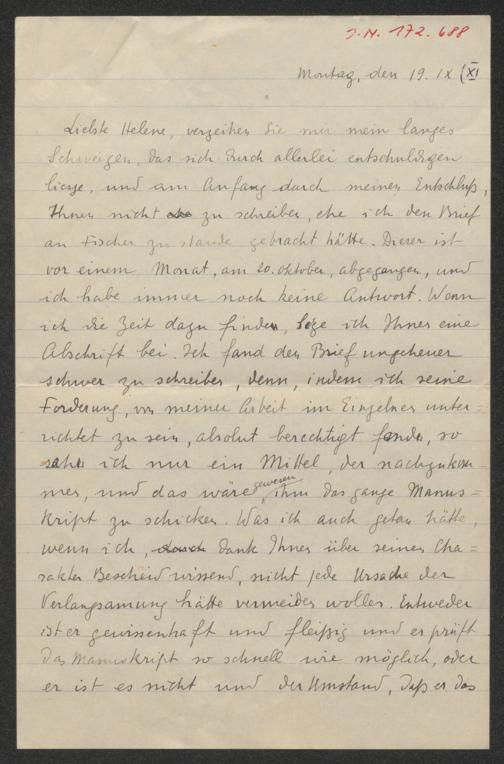 J.N. 172.688
Montag, den 19. IX (XI
Liebste Helene, verzeihen Sie mir mein langes
Schweigen, das sich durch allerlei entschuldigen
liesze, und am Anfang durch meinen Entschluß,
Ihnen nicht zu schreiben, ehe ich den Brief
an Fischer zu stande gebracht hätte. Dieser ist
vor einem Monat, am 20. Oktober, abgegangen, und
ich habe immer noch keine Antwort. Wenn
ich die Zeit dazu finden, lege ich Ihnen eine
Abschrift bei. Ich fand den Brief ungeheuer
schwer zu schreiben, denn, indem ich seine
Forderung, von meiner Arbeit im Einzelnen unter=
richtet zu sein, absolut berechtigt fande, so
sah ich nur ein Mittel, der nachzukom=
men, und das wäre gewesen, ihm das ganze Manus=
kript zu schicken. Was ich auch getan hätte,
wenn ich, dank Ihnen über seinen Cha=
rakter Bescheid wissend, nicht jede Ursache der
Verlangsamung hätte vermeiden wollen. Entweder
ist er gewissenhaft und fleißig und er prüft
das Manuskript so schnell wie möglich, oder
er ist es nicht und der Umstand, daß er das